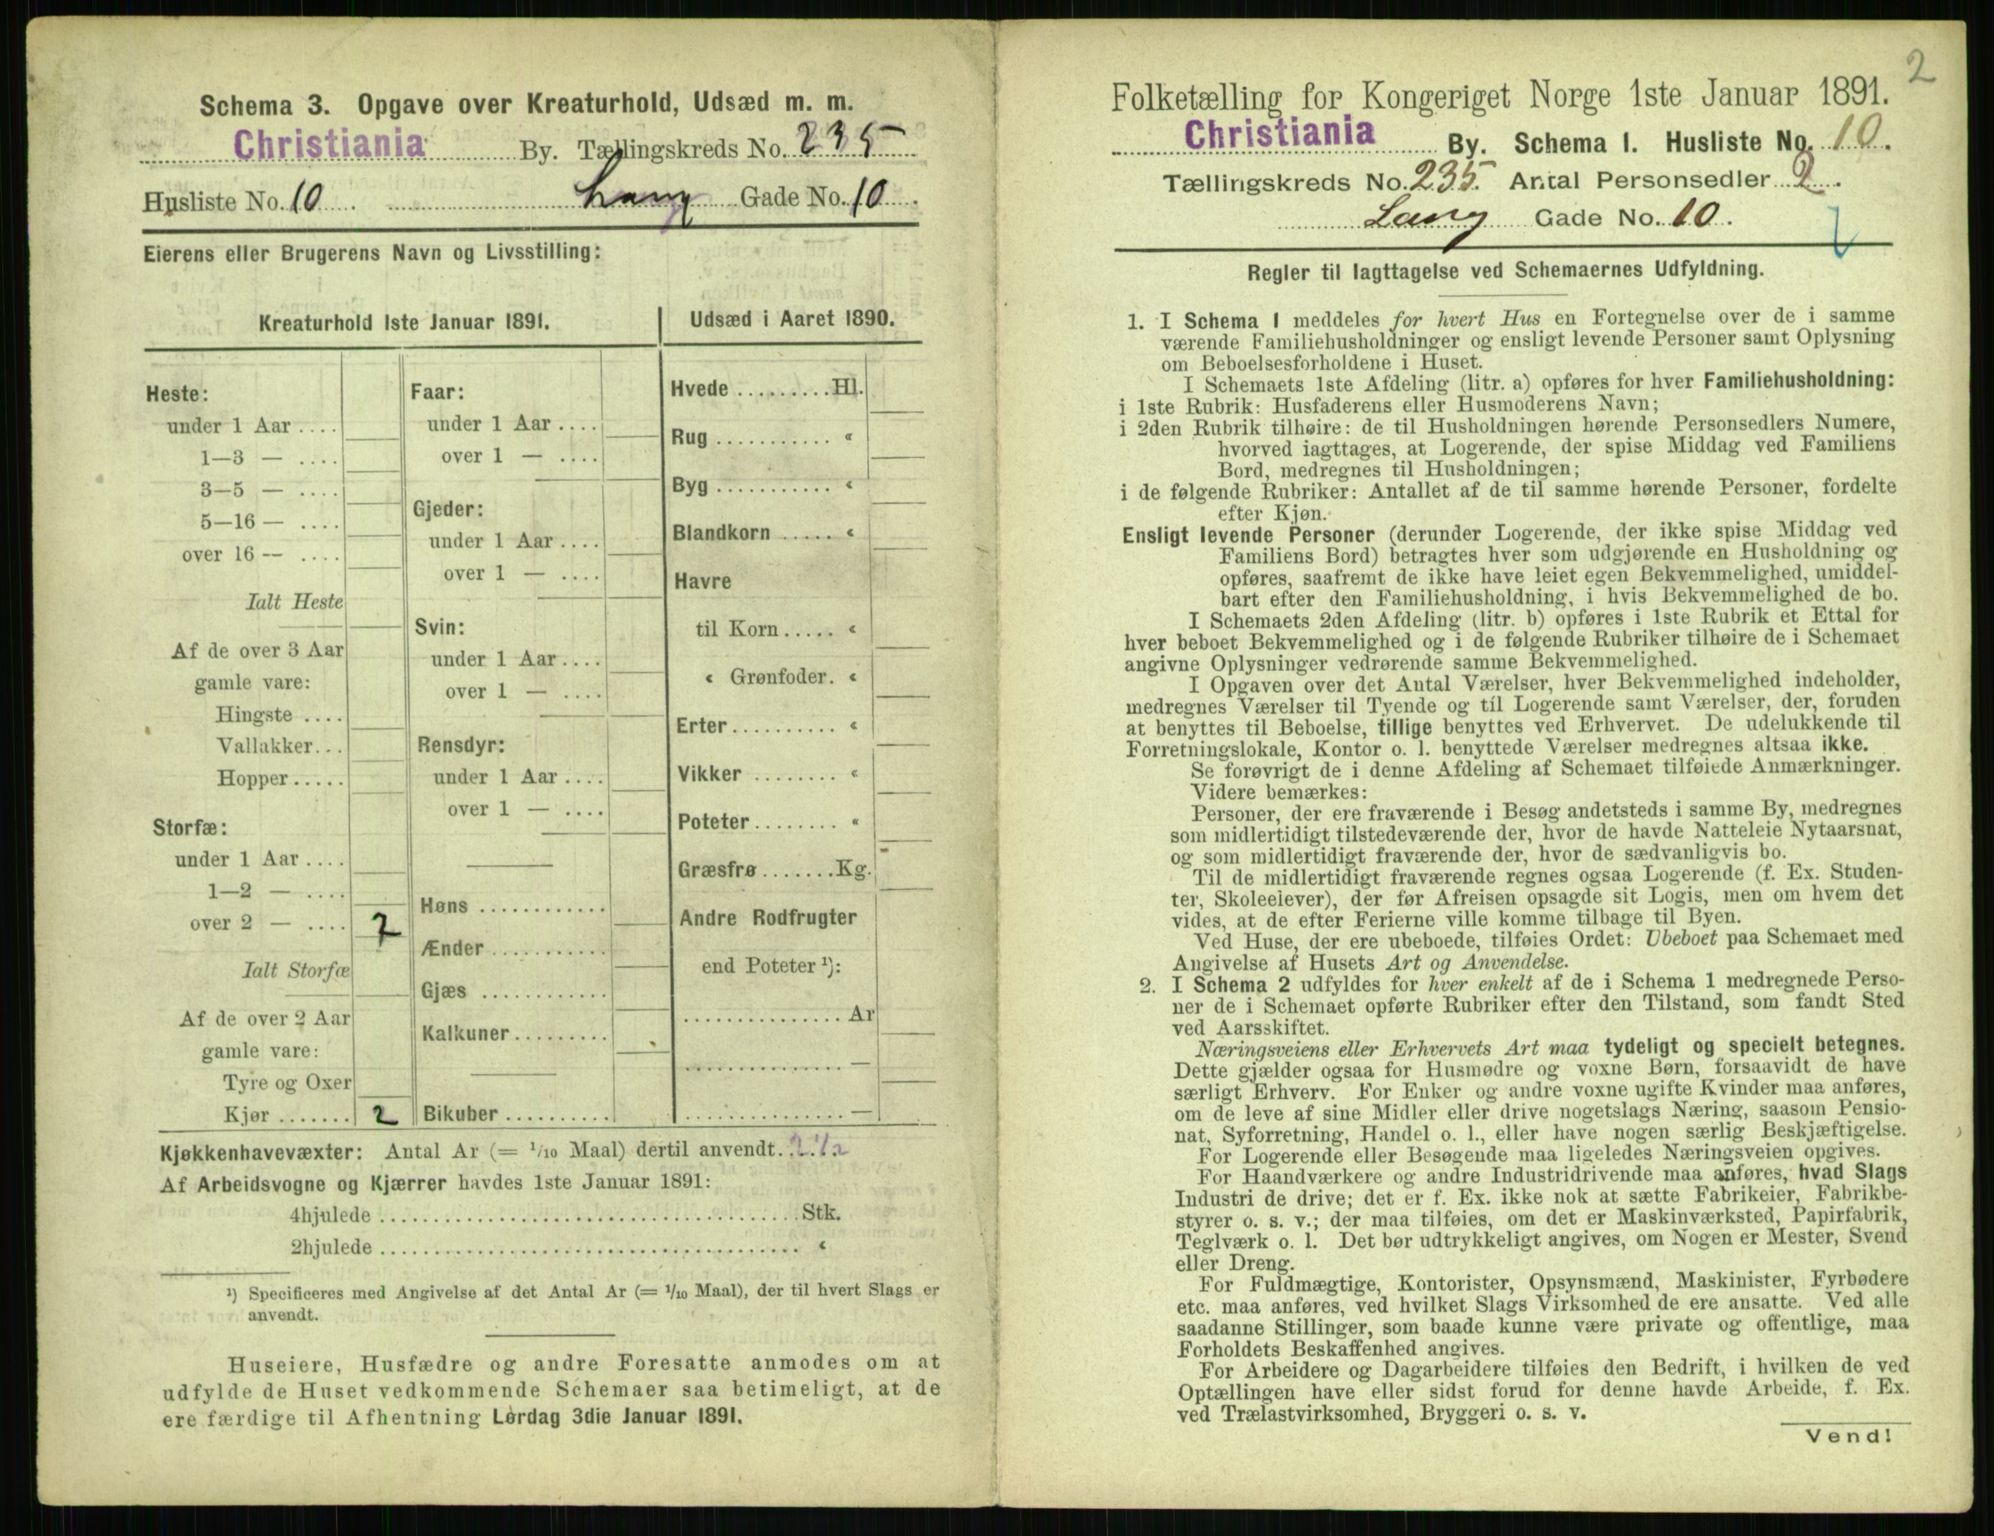 Schema 3. Opgave over Kreaturhold, Udsæd m. m.
Christiania By. Tællingskreds No. 235
Husliste No. 10 Lang Gade No. 10.
Eierens eller Brugerens Navn og Livsstilling:
Kreaturhold 1ste Januar 1891.
Heste:
under 1 Aar ....
1—3 — ....
3—5 — ....
5—16 — ....
over 16 — ....
Ialt Heste
Af de over 3 Aar
gamle vare:
Hingste ....
Vallakker...
Hopper.....
Storfæ:
under 1 Aar ....
1—2 — ....
over 2 — .... 2
Ialt Storfæ
Af de over 2 Aar
gamle vare:
Tyre og Oxer
Kjør ....... 2
Faar:
under 1 Aar ....
over 1 — ....
Gjeder:
under 1 Aar ....
over 1 — ....
Svin:
under 1 Aar ....
over 1 — ....
Rensdyr:
under 1 Aar ....
over 1 — ....
Høns ............
Ænder ...........
Gjæs ............
Kalkuner .........
Bikuber ..........
Udsæd i Aaret 1890.
Hvede .........Hl.
Rug ........... "
Byg ........... "
Blandkorn ..... "
Havre
til Korn ..... "
" Grønfoder. "
Erter .......... "
Vikker ........ "
Poteter ........ "
Græsfrø .......Kg.
Andre Rodfrugter
end Poteter ¹):
............... Ar
............... —
............... —
Kjøkkenhavevæxter: Antal Ar (= 1/10 Maal) dertil anvendt. 2 1/2
Af Arbeidsvogne og Kjærrer havdes 1ste Januar 1891:
4hjulede ........................................ Stk.
2hjulede ........................................ "
¹) Specificeres med Angivelse af det Antal Ar (= 1/10 Maal), der til hvert Slags er
anvendt.
Huseiere, Husfædre og andre Foresatte anmodes om at
udfylde de Huset vedkommende Schemaer saa betimeligt, at de
ere færdige til Afhentning Lørdag 3die Januar 1891.
2
Folketælling for Kongeriget Norge 1ste Januar 1891.
Christiania By. Schema 1. Husliste No. 10.
Tællingskreds No. 235. Antal Personsedler 2.
Lang Gade No. 10.
Regler til Iagttagelse ved Schemaernes Udfyldning.
1. I Schema 1 meddeles for hvert Hus en Fortegnelse over de i samme
værende Familiehusholdninger og ensligt levende Personer samt Oplysning
om Beboelsesforholdene i Huset.
I Schemaets 1ste Afdeling (litr. a) opføres for hver Familiehusholdning:
i 1ste Rubrik: Husfaderens eller Husmoderens Navn;
i 2den Rubrik tilhøire: de til Husholdningen hørende Personsedlers Numere,
hvorved iagttages, at Logerende, der spise Middag ved Familiens
Bord, medregnes til Husholdningen;
i de følgende Rubriker: Antallet af de til samme hørende Personer, fordelte
efter Kjøn.
Ensligt levende Personer (derunder Logerende, der ikke spise Middag ved
Familiens Bord) betragtes hver som udgjørende en Husholdning og
opføres, saafremt de ikke have leiet egen Bekvemmelighed, umiddel-
bart efter den Familiehusholdning, i hvis Bekvemmelighed de bo.
I Schemaets 2den Afdeling (litr. b) opføres i 1ste Rubrik et Ettal for
hver beboet Bekvemmelighed og i de følgende Rubriker tilhøire de i Schemaet
angivne Oplysninger vedrørende samme Bekvemmelighed.
I Opgaven over det Antal Værelser, hver Bekvemmelighed indeholder,
medregnes Værelser til Tyende og til Logerende samt Værelser, der, foruden
at benyttes til Beboelse, tillige benyttes ved Erhvervet. De udelukkende til
Forretningslokale, Kontor o. l. benyttede Værelser medregnes altsaa ikke.
Se forøvrigt de i denne Afdeling af Schemaet tilføiede Anmærkninger.
Videre bemærkes:
Personer, der ere fraværende i Besøg andetsteds i samme By, medregnes
som midlertidigt tilstedeværende der, hvor de havde Natteleie Nytaarsnat,
og som midlertidigt fraværende der, hvor de sædvanligvis bo.
Til de midlertidigt fraværende regnes ogsaa Logerende (f. Ex. Studen-
ter, Skoleelever), der før Afreisen opsagde sit Logis, men om hvem det
vides, at de efter Ferierne ville komme tilbage til Byen.
Ved Huse, der ere ubeboede, tilføies Ordet: Ubeboet paa Schemaet med
Angivelse af Husets Art og Anvendelse.
2. I Schema 2 udfyldes for hver enkelt af de i Schema 1 medregnede Perso-
ner de i Schemaet opførte Rubriker efter den Tilstand, som fandt Sted
ved Aarsskiftet.
Næringsveiens eller Erhvervets Art maa tydeligt og specielt betegnes.
Dette gjælder ogsaa for Husmødre og voxne Børn, forsaavidt de have
særligt Erhverv. For Enker og andre voxne ugifte Kvinder maa anføres,
om de leve af sine Midler eller drive nogetslags Næring, saasom Pensio-
nat, Syforretning, Handel o. l., eller have nogen særlig Beskjæftigelse.
For Logerende eller Besøgende maa ligeledes Næringsveien opgives.
For Haandværkere og andre Industridrivende maa anføres, hvad Slags
Industri de drive; det er f. Ex. ikke nok at sætte Fabrikeier, Fabrikbe-
styrer o. s. v.; der maa tilføies, om det er Maskinværksted, Papirfabrik,
Teglværk o. l. Det bør udtrykkeligt angives, om Nogen er Mester, Svend
eller Dreng.
For Fuldmægtige, Kontorister, Opsynsmænd, Maskinister, Fyrbødere
etc. maa anføres, ved hvilket Slags Virksomhed de ere ansatte. Ved alle
saadanne Stillinger, som baade kunne være private og offentlige, maa
Forholdets Beskaffenhed angives.
For Arbeidere og Dagarbeidere tilføies den Bedrift, i hvilken de ved
Optællingen have eller sidst forud for denne havde Arbeide, f. Ex.
ved Trælastvirksomhed, Bryggeri o. s. v.
Vend!